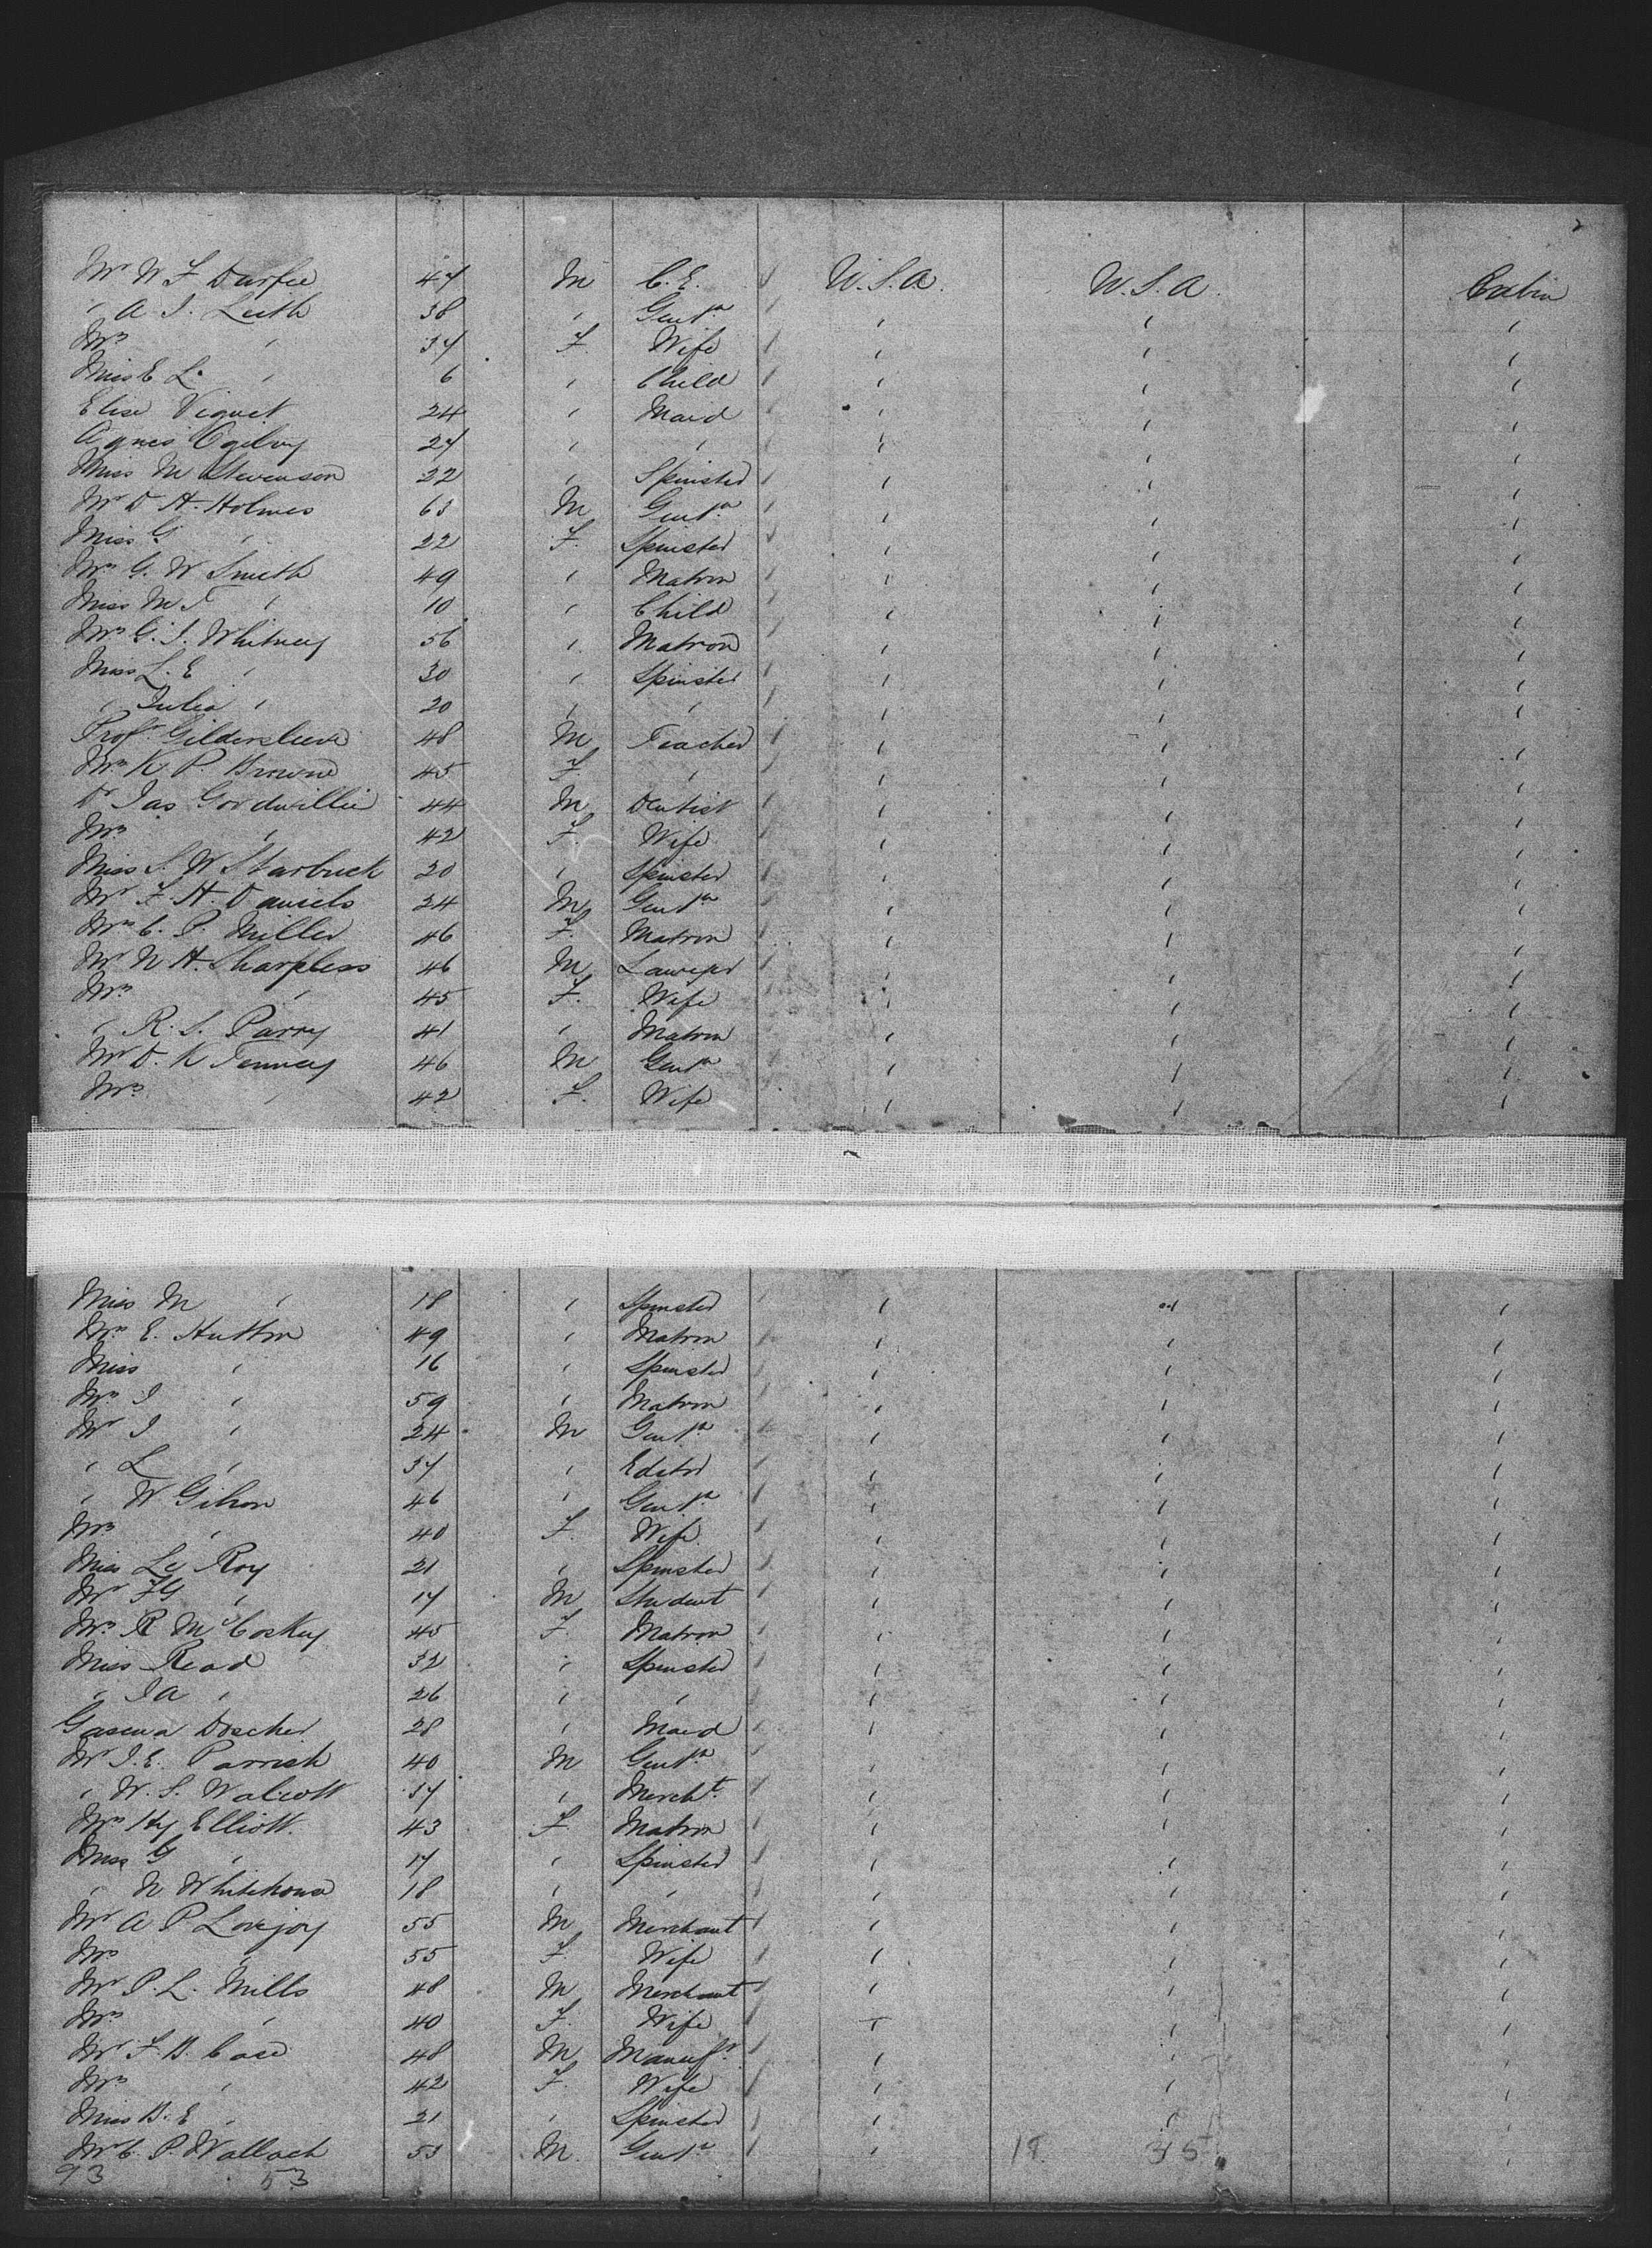 2
Mr W F Durfee 47 M C.E. U.S.A. U.S.A. Cabin
" A. J. Leith 38 " Gentn " " "
Mrs " 37 F. Wife " " "
Miss E L. " 6 " Child " " "
Elise Viquet 24 " Maid " " "
Agnes Ogilvy 27 " " " " "
Miss M Stevenson 22 " Spinster " " "
Mr D H. Holmes 63 M Gentn " " "
Miss G " 22 F. Spinster " " "
Mrs G. W Smith 49 " Matron " " "
Miss M F " 10 " Child " " "
Mrs G. J. Whitney 56 " Matron " " "
Miss L. E " 30 " Spinster " " "
" Julia " 20 " " " " "
Prof Gildersleeve 48 M Teacher " " "
Mrs K P. Browne 45 F. " " " "
Dr Jas Goodwillie 44 M Dentist " " "
Mrs " 42 F. Wife " " "
Miss S. W Starbuck 20 " Spinster " " "
Mr F. H. Daniels 24 M Gentn " " "
Mrs C. P. Miller 46 F. Matron " " "
Mr N H. Sharpless 46 M Lawyer " " "
Mrs " 45 F. Wife " " "
" R. S. Parry 41 " Matron " " "
Mr D. K Tenney 46 M Gentn " " "
Mrs " 42 F. Wife " " "
Miss M " 18 " Spinster " " "
Mrs E. Hutton 49 " Matron " " "
Miss " 16 " Spinster " " "
Mrs J " 59 " Matron " " "
Mr J " 24 M Gentn " " "
" L " 37 " Editor " " "
" W Gihon 46 " Gentn " " "
Mrs " 40 F. Wife " " "
Miss Le Roy 21 " Spinster " " "
Mr FG " 17 M Student " " "
Mrs R McCoskey 45 F. Matron " " "
Miss Read 32 " Spinster " " "
" J A " 26 " " " " "
Gasena Doscher 28 " Maid " " "
Mr J. E. Parrish 40 M Gentn " " "
" W. S. Walcott 37 " Mercht. " " "
Mrs Hy Elliott. 43 F. Matron " " "
Miss G " 17 " Spinster " " "
" N Whitehouse 18 " " " " "
Mr A P Lovejoy 55 M Merchant " " "
Mrs " 55 F. Wife " " "
Mr P. L. Mills 48 M Merchant " " "
Mrs " 40 F. Wife " " "
Mr F. B. Case 48 M Manufr. " " "
Mrs " 42 F. Wife " " "
Miss B. E " 21 " Spinster " " "
Mr C. P. Wallach 53 M. Gentn " 18. 35 "
93 53